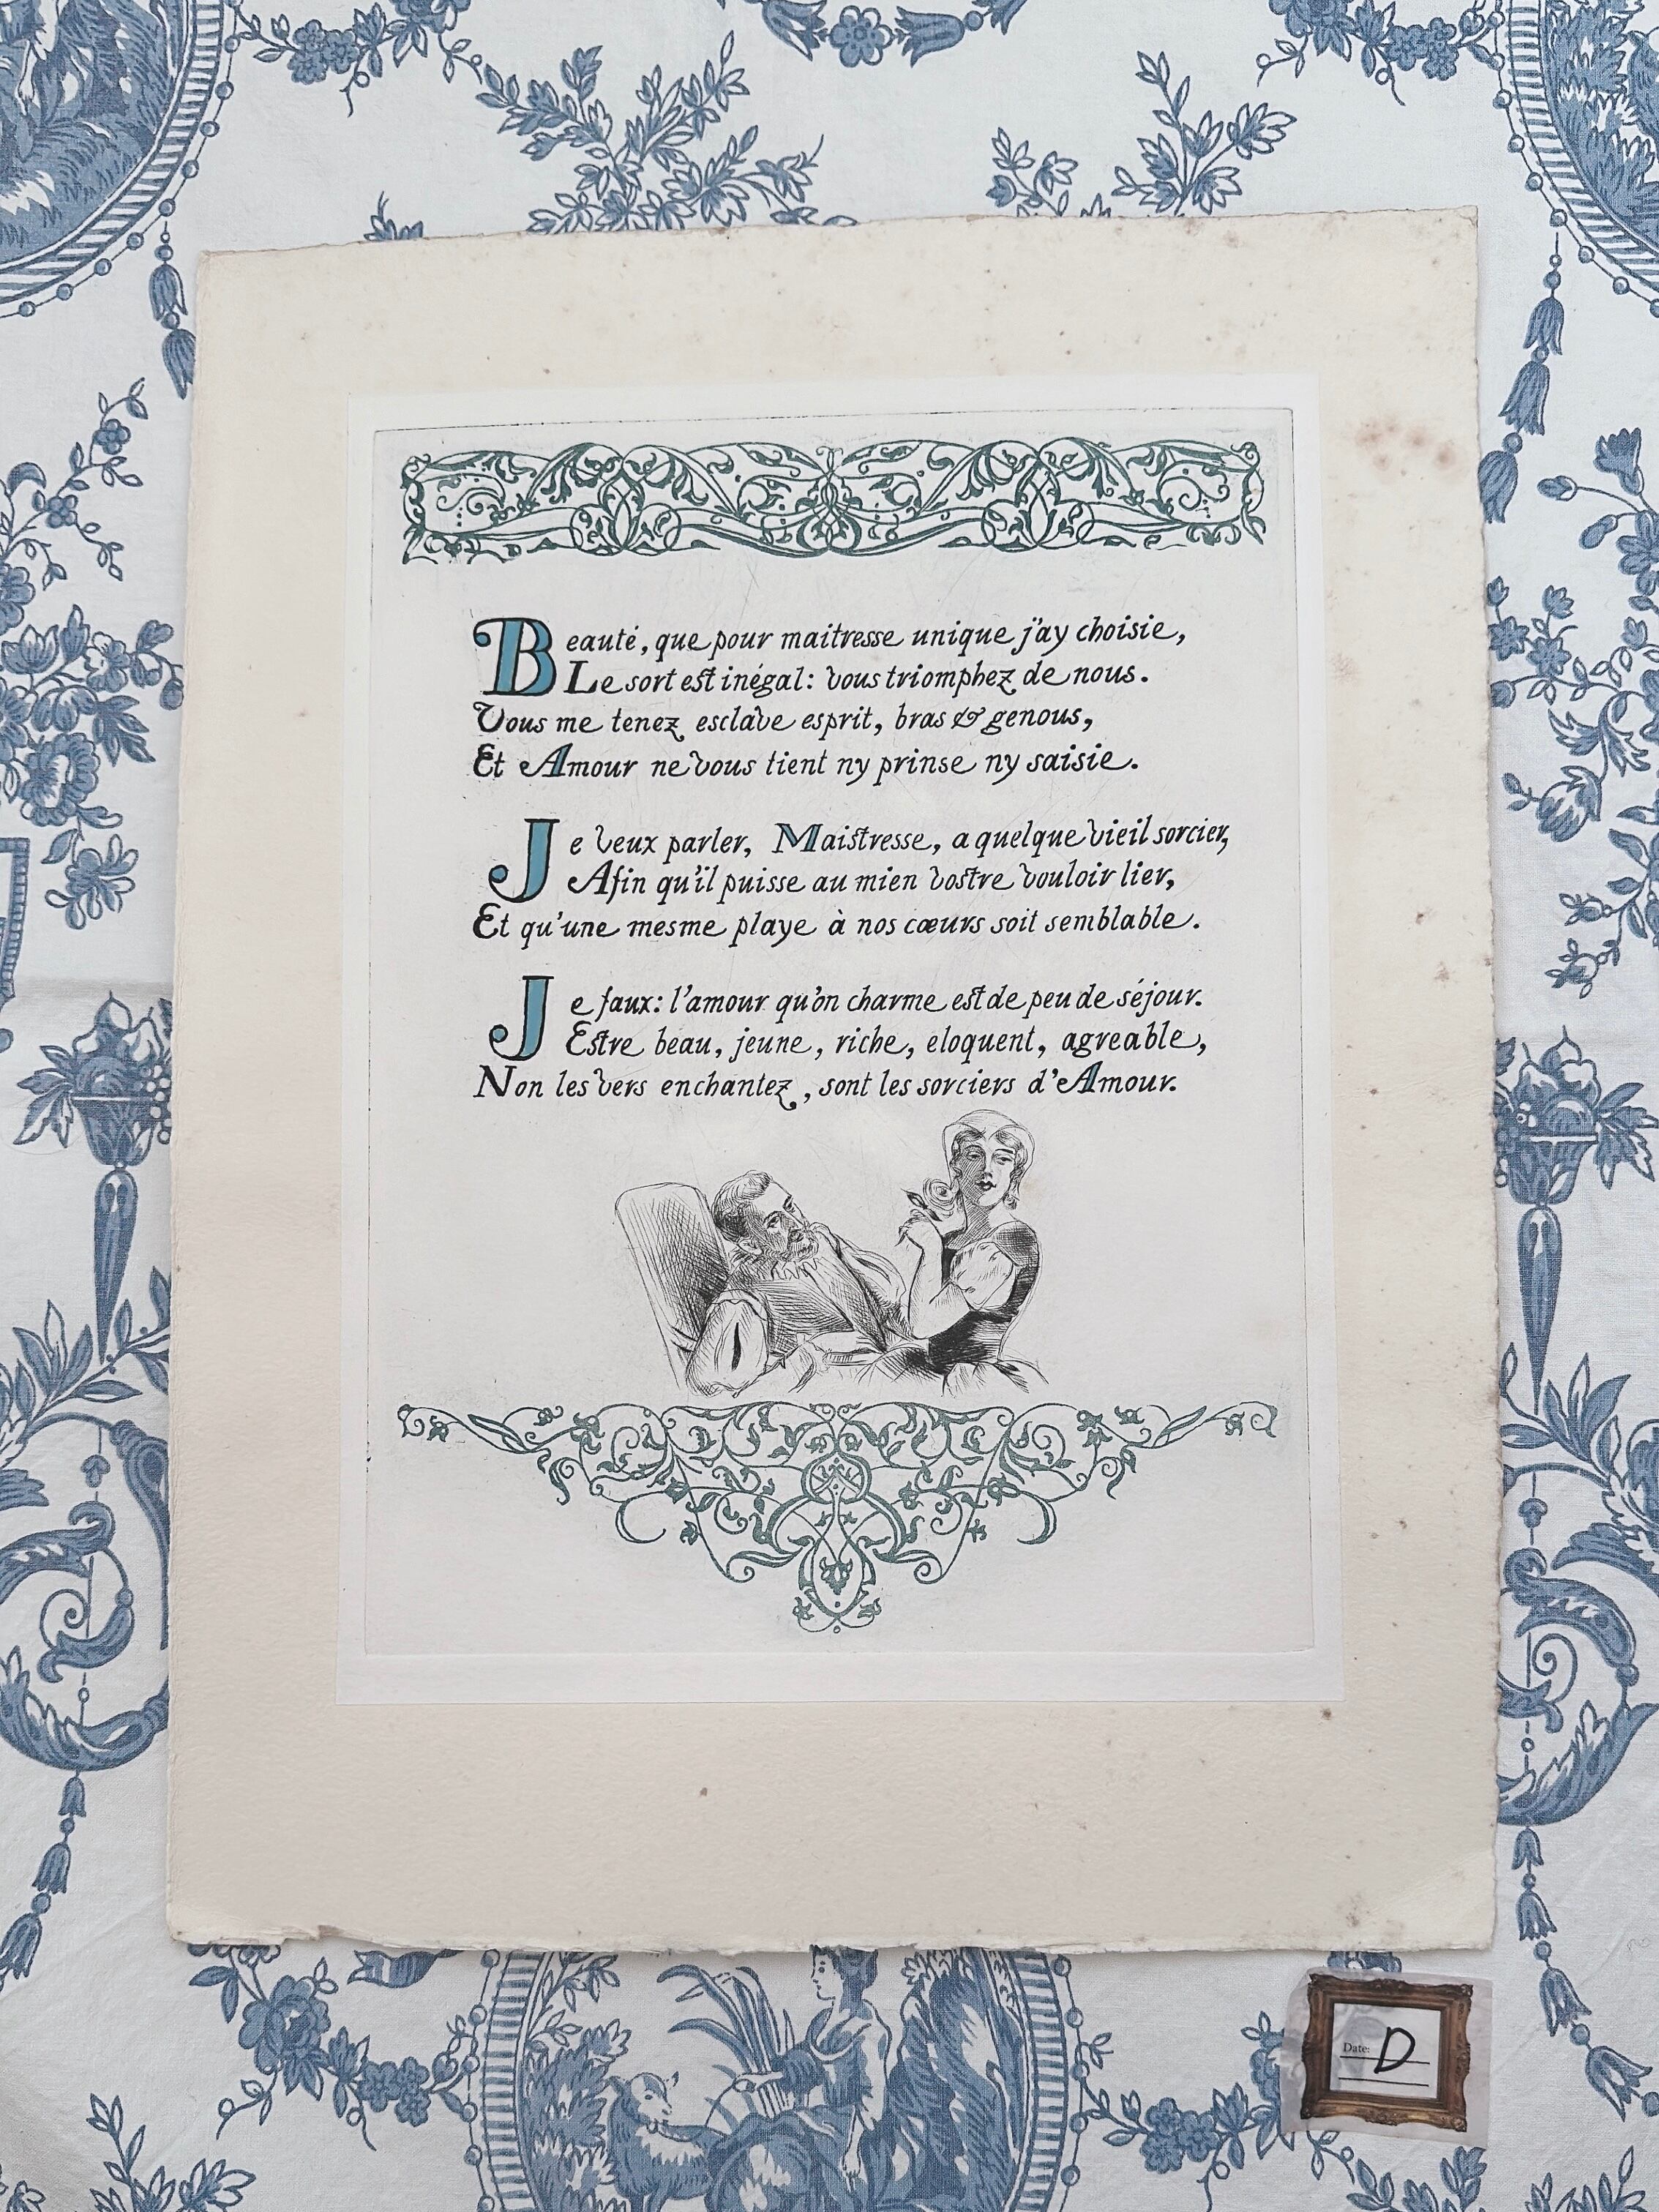 Beauté, que pour maitresse unique j'ay choisie,
Le sort est inégal: vous triomphez de nous.
Vous me tenez esclave esprit, bras & genous,
Et Amour ne vous tient ny prinse ny saisie.
Je veux parler, Maistresse, a quelque vieil sorcier,
Afin qu'il puisse au mien vostre vouloir lier,
Et qu'une mesme playe à nos cœurs soit semblable.
Je faux: l'amour qu'on charme est de peu de séjour.
Estre beau, jeune, riche, eloquent, agreable,
Non les vers enchantez, sont les sorciers d'Amour.
Date: D